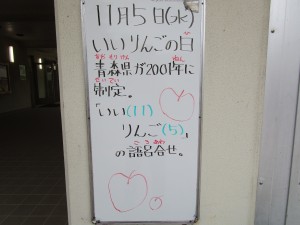 11月5日(水)
いいりんごの日
あおもりけん ねん
青森県が2001年に
せいてい
制定。
"いい(11)
りんご(5)"
ごろあわ
の語呂合せ。